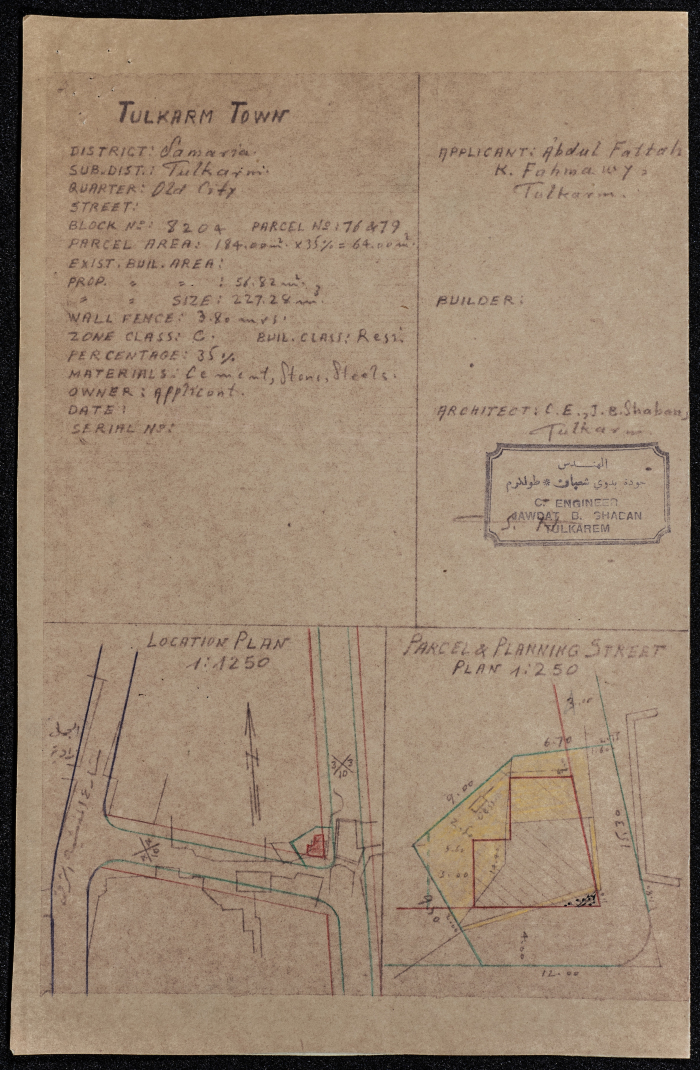 TULKARM TOWN
DISTRICT: Samaria.
SUB.DIST.: Tulkarm.
QUARTER: Old City
STREET:
BLOCK Nº: 8204 PARCEL Nº: 76 & 79
PARCEL AREA: 184.00 m². x 35% = 64.00 m².
EXIST. BUIL. AREA:
PROP. " " : 56.82 m².
" " SIZE: 227.28 m³.
WALL FENCE: 3.80 mrs.
ZONE CLASS: C. BUIL. CLASS: Resi.
PERCENTAGE: 35%
MATERIALS: Cement, Stone, Steels.
OWNER: Applicant.
DATE:
SERIAL Nº:
APPLICANT: Abdul Fattah
K. Fahmawy,
Tulkarm.
BUILDER:
ARCHITECT: C.E., J.B. Shaban,
Tulkarm
المهندس
جودة بدوي شعبان * طولكرم
C. ENGINEER
JAWDAT B. SHABAN
TULKAREM
LOCATION PLAN
1:1250
3 3
10
10
PARCEL & PLANNING STREET
PLAN 1:250
3.00
6.70
9.00
5.50
11.30
9.50
4.00
12.00